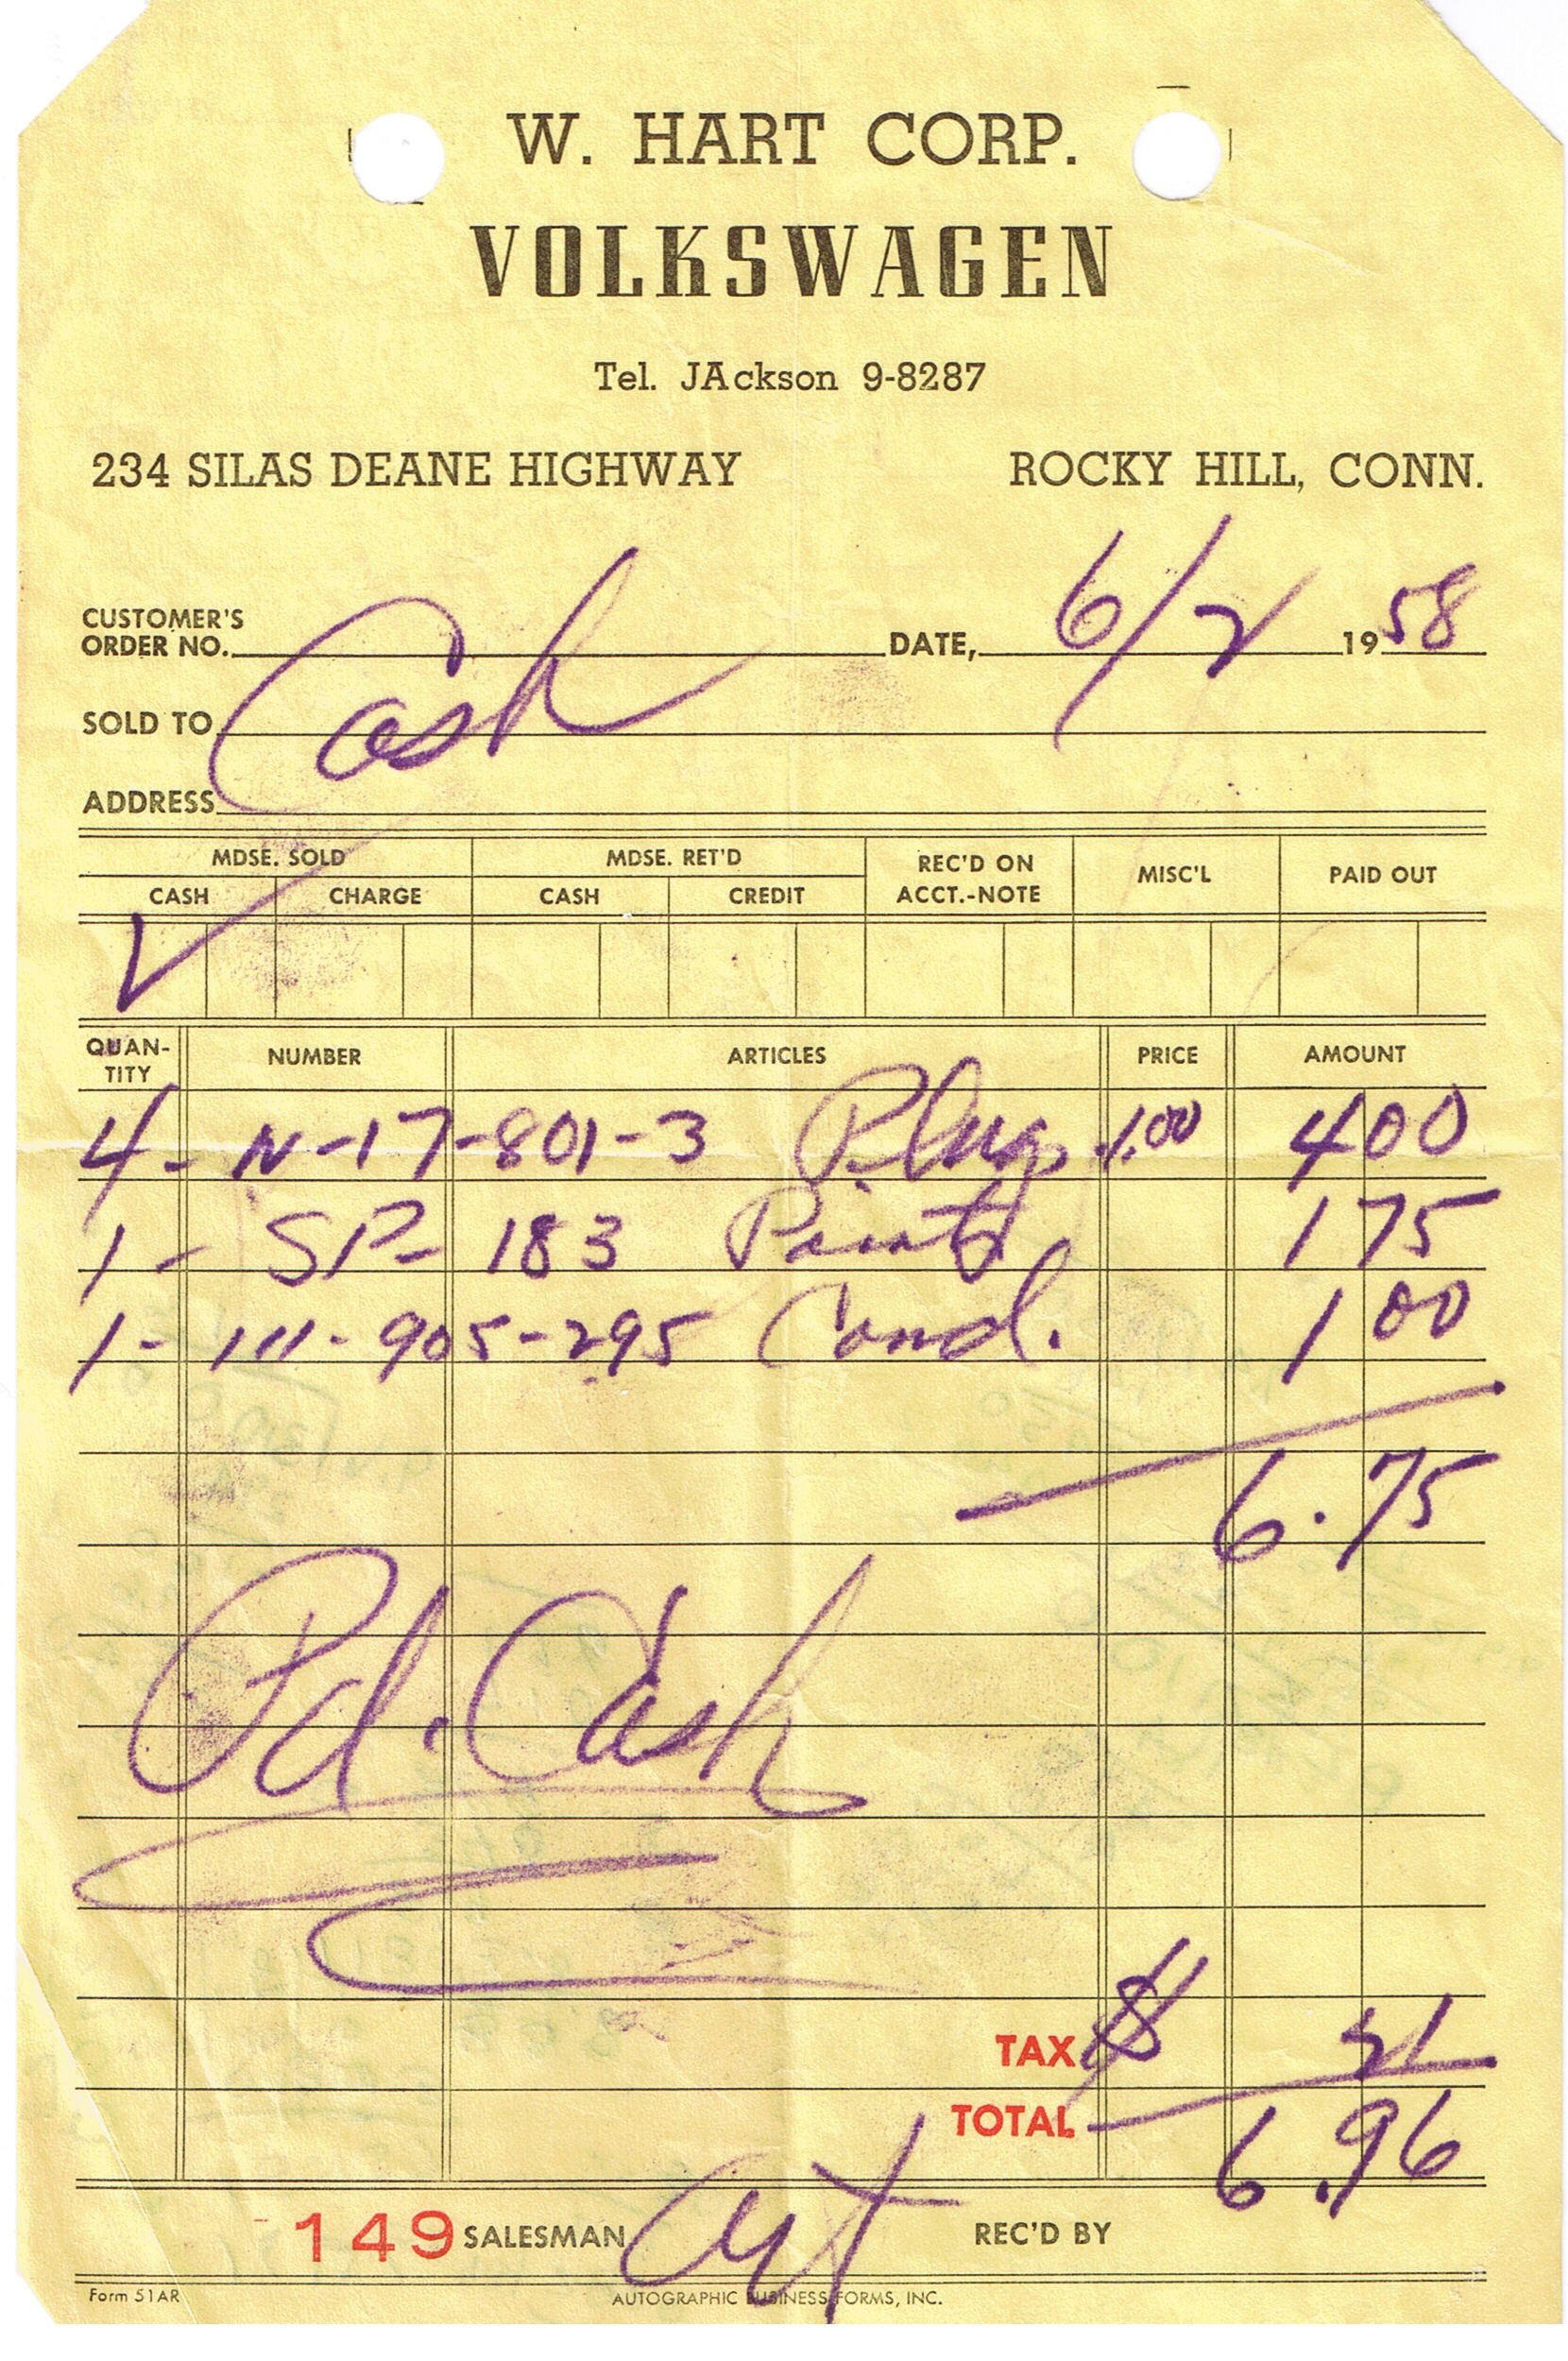 W. HART CORP.
VOLKSWAGEN
Tel. JAckson 9-8287
234 SILAS DEANE HIGHWAY ROCKY HILL, CONN.
CUSTOMER'S
ORDER NO. DATE, 6/2 1958
SOLD TO Cash
ADDRESS
MDSE. SOLD MDSE. RET'D REC'D ON ACCT.-NOTE MISC'L PAID OUT
CASH CHARGE CASH CREDIT
✓
QUAN-TITY NUMBER ARTICLES PRICE AMOUNT
4- N-17-801-3 Plugs 1.00 4 00
1- SP- 183 Points 1 75
1- 111-905-295 Cond. 1 00
6.75
Pd. Cash
TAX $ 21
TOTAL 6.96
149 SALESMAN Art REC'D BY
Form 51AR AUTOGRAPHIC BUSINESS FORMS, INC.